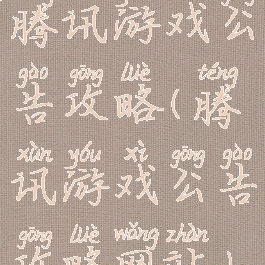 腾讯游戏公
gào gōng lüè téng
告攻略(腾
xùn yóu xì gōng gào
讯游戏公告
gōng lüè wǎng zhàn
攻略网站)